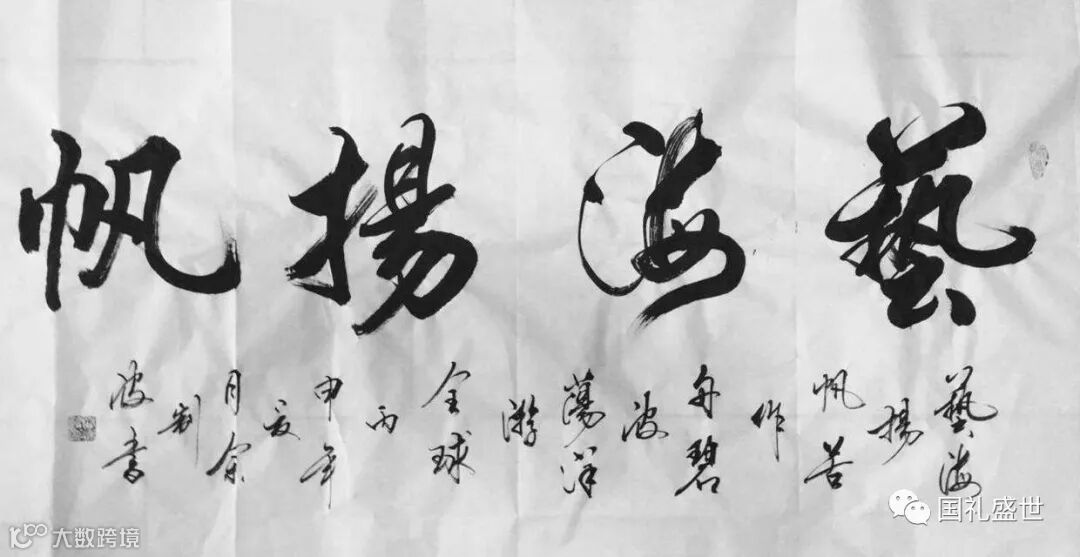 藝海揚帆
藝海
揚
帆苦
作
舟碧
波
蕩洋
游
全球
丙
申年
夏
月
制
波書
国礼盛世
大数跨境